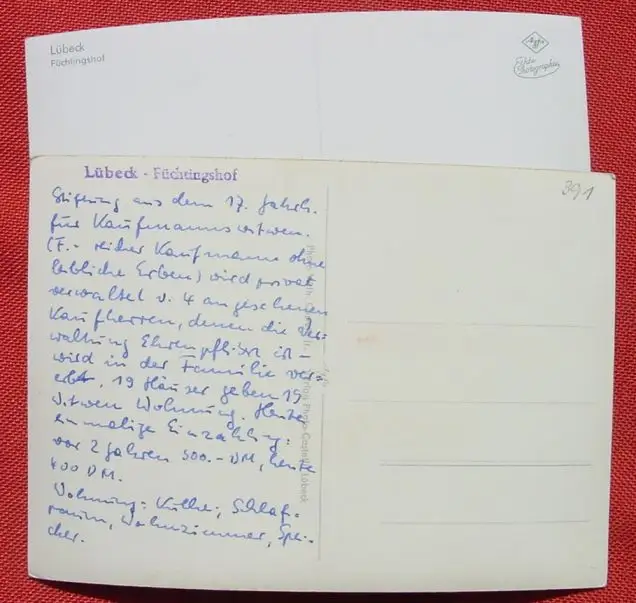 Lübeck
Füchtingshof
Agfa
Echte
Photographie
Lübeck - Füchtingshof
391
Stiftung aus dem 17. Jahrh.
für Kaufmannswitwen.
(F. - reicher Kaufmann ohne
leibliche Erben) wird privat
verwaltet v. 4 angesehenen
Kaufherren, denen die Ver=
waltung Ehrenpflicht ist -
wird in der Familie ver=
erbt. 19 Häuser geben 19
Witwen Wohnung. Heute
einmalige Einzahlung:
vor 2 Jahren 300.- DM, heute
400 DM.
Wohnung: Küche, Schlaf-
raum, Wohnzimmer, Spei-
cher.
Photo Castelli, Lübeck